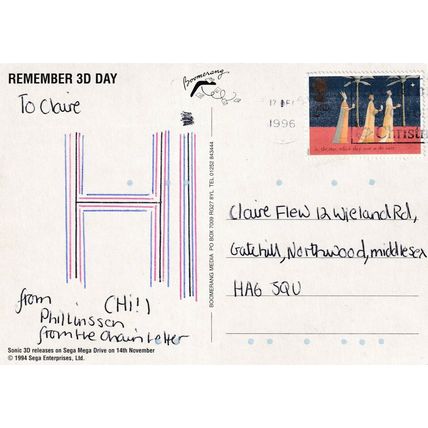 REMEMBER 3D DAY
To Claire
HI
(Hi!)
from
from the Chain Letter
Sonic 3D releases on Sega Mega Drive on 14th November
© 1994 Sega Enterprises, Ltd.
Boomerang
BOOMERANG MEDIA PO BOX 7009 RG27 8YL TEL 01252 843444
1996
Christm
Claire Flew 12 Wieland Rd,
Gatehill, Northwood, middlesex
HA6 3QU